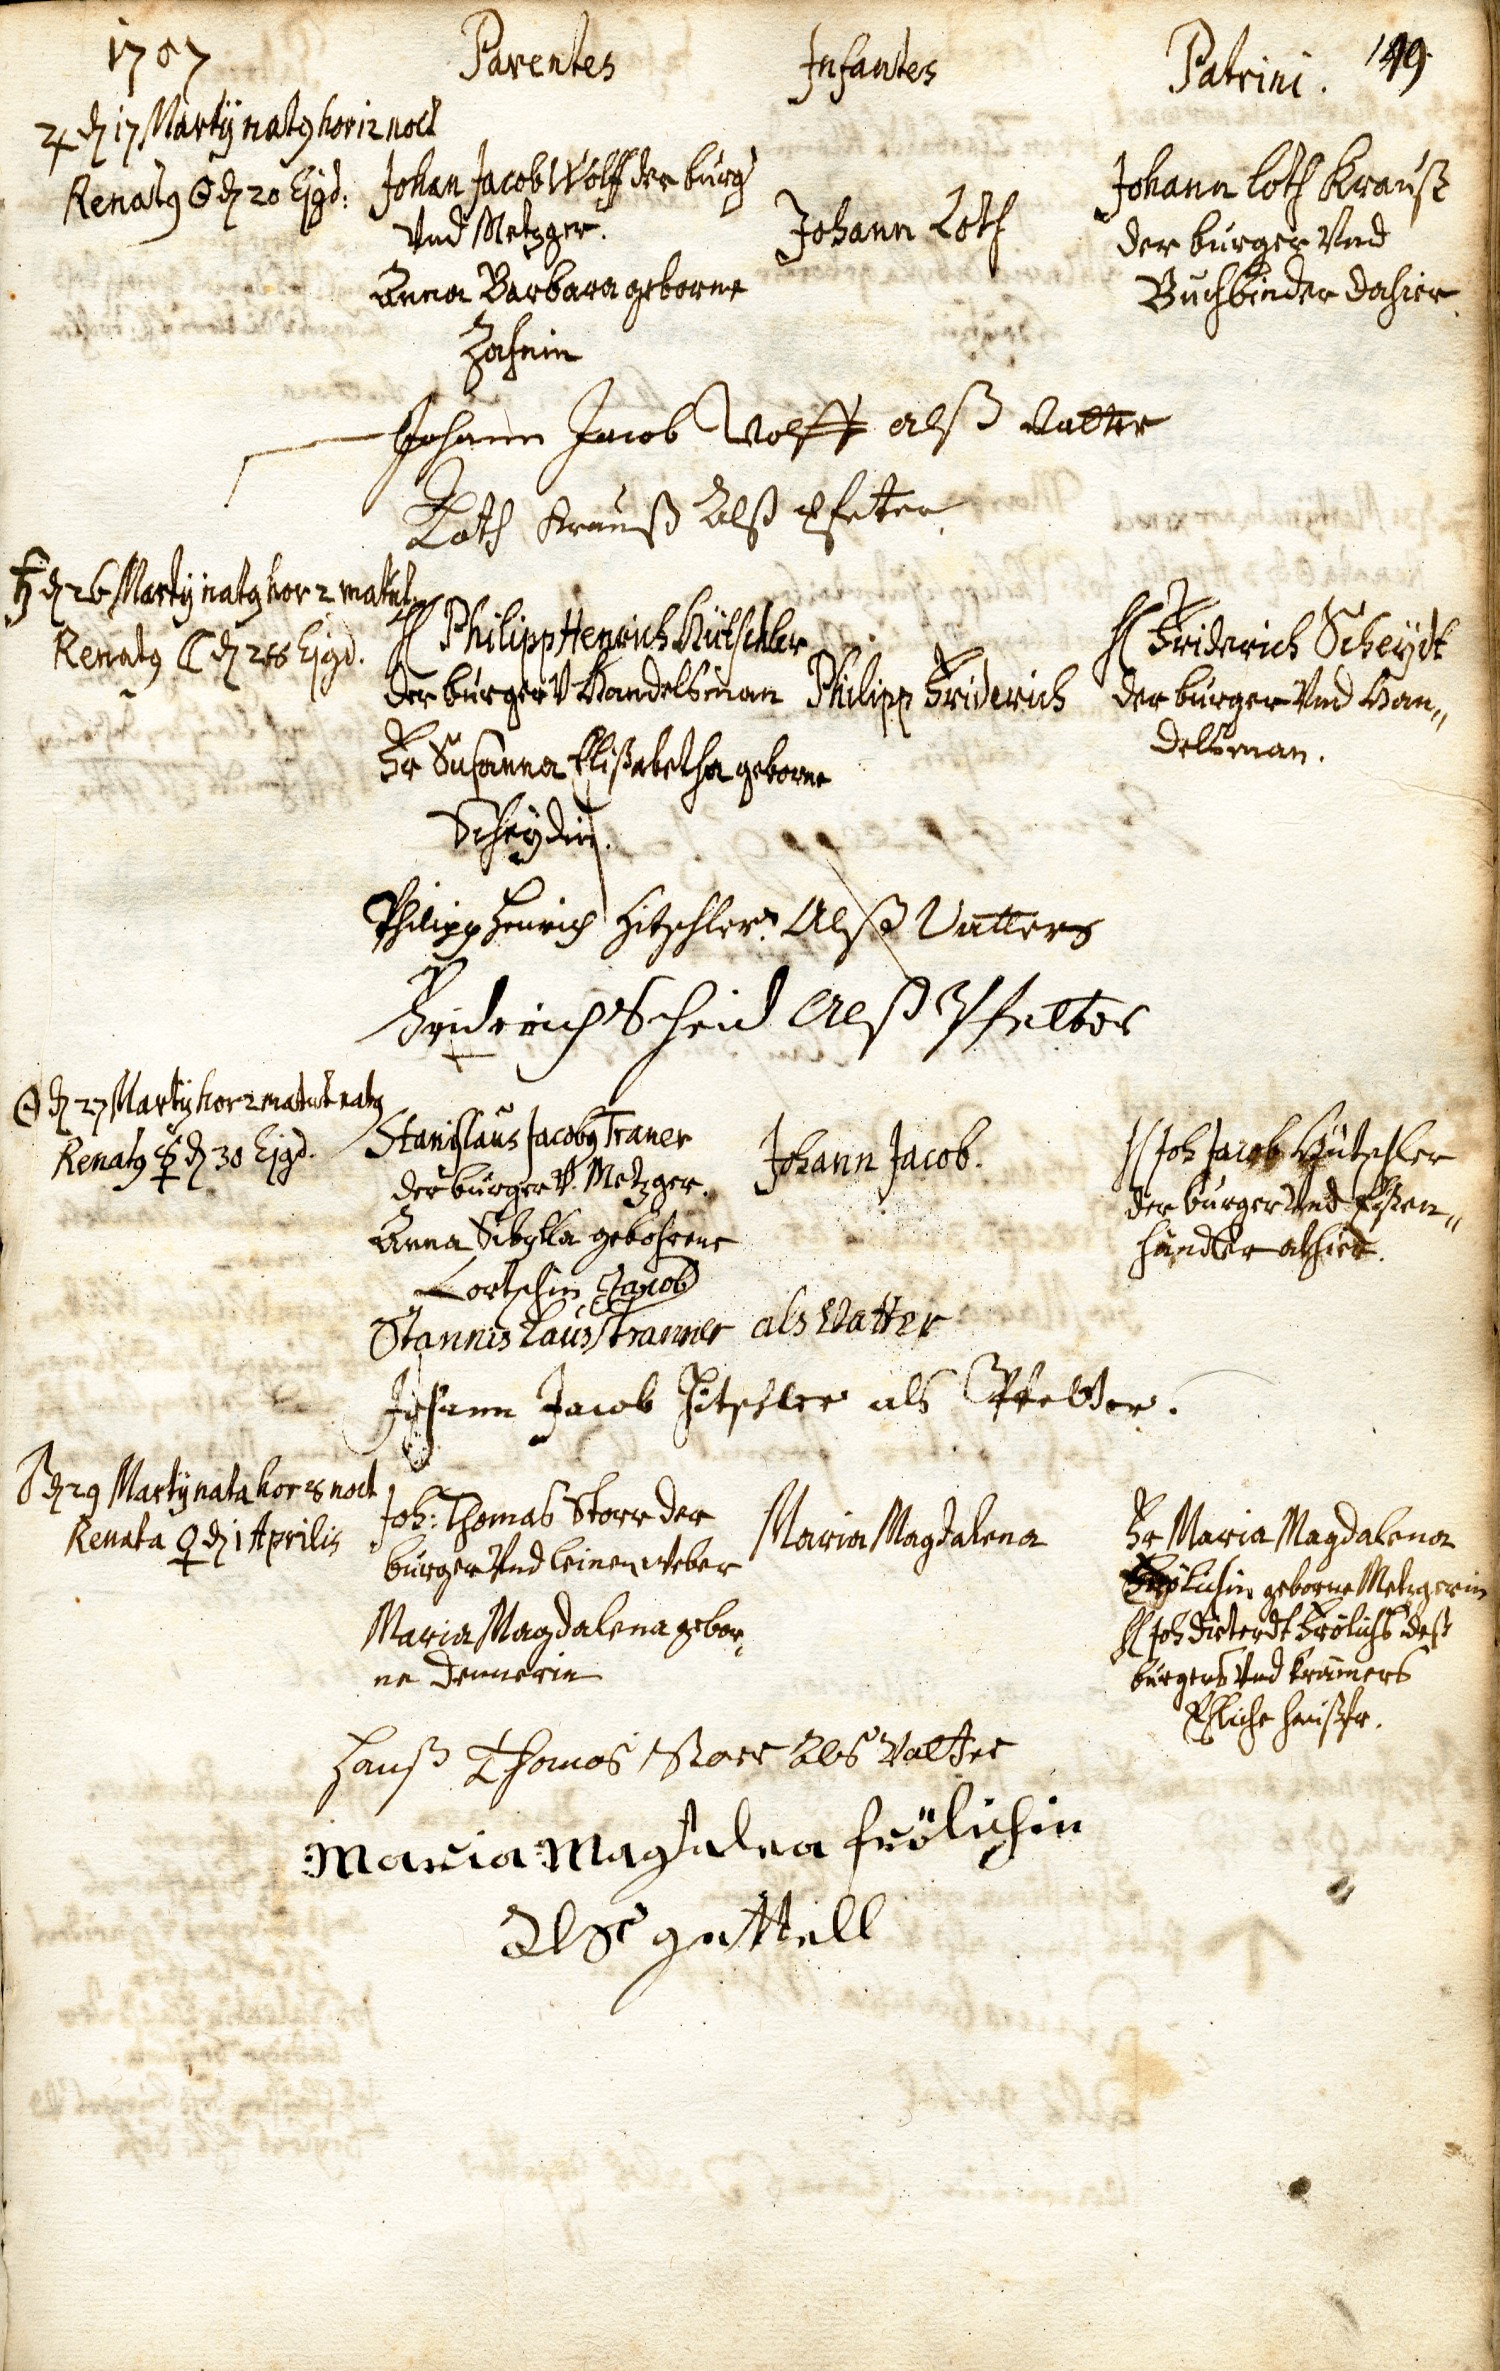 1707 Parentes Infantes Patrini. 149.
♃ d 17 Martij natg hor 12 noct
Renatg ☉ d 20 Ejgd:
Johan Jacob Wolff der burg
Vnd Metzger.
Anna Barbara geborne
Zahnin
Johann Loth
Johann Loth Krauß
der burger Vnd
Buchbinder dahier.
Johann Jacob Wolff alß Vatter
Loth Krauß Alß Pfetter
♄ d 26 Martij natg hor 2 matut
Renatg ☾ d 28 Ejgd.
H Philipp Henrich Hütschler
der burger V Handelsman
Fr Susanna Elisabetha geborne
Scheydin.
Philipp Friderich
H Friderich Scheydt
der burger Vnd Han„
delsman.
Philipp Henrich Hitschler Alß Vatters
Fridrich Scheid Alß Pfetter
☉ d 27 Martij hor 2 matut natg
Renatg ☿ d 30 Ejgd.
Stanislaus Jacobg Traner
der burger V. Metzger.
Anna Sibylla gebohrene
Lortschin
Johann Jacob.
H Joh Jacob Hütschler
der burger Vnd Eißen„
händler alhier.
Jacob
Stannis Laus tranner als Vatter
Johann Jacob Hitschler als Pfetter.
♂ d 29 Martij nata hor 8 noct
Renata ♀ d 1 Aprilis
Joh: Thomas Storr der
burger Vnd leinenweber
Maria Magdalena gebor„
ne Dennerin
Maria Magdalena
Fr Maria Magdalena
Frölichin geborne Metzgerin
H Joh Dieterdt Frölichs deß
burgers Vnd Krämers
Ehliche haußfr.
Hanß Thomas Storr Als Vatter
Maria Magdalea frölichin
Als gettell